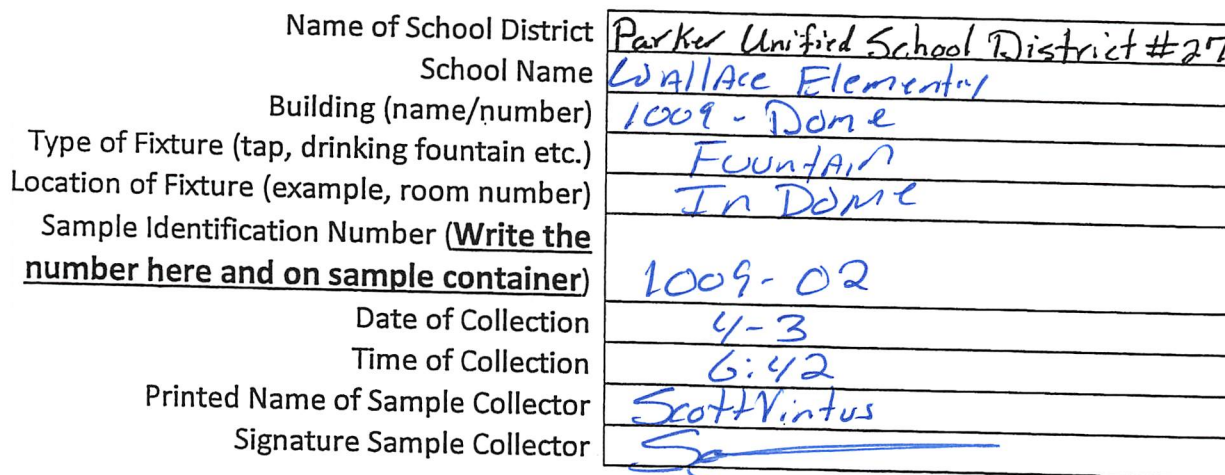 Name of School District Parker Unified School District #27
School Name Wallace Elementry
Building (name/number) 1009 - Dome
Type of Fixture (tap, drinking fountain etc.) Fountain
Location of Fixture (example, room number) In Dome
Sample Identification Number (Write the
number here and on sample container) 1009-02
Date of Collection 4-3
Time of Collection 6:42
Printed Name of Sample Collector Scott Vintus
Signature Sample Collector